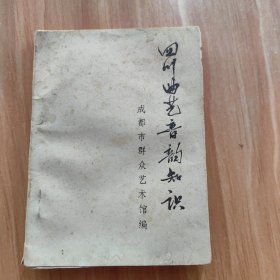 四川曲艺音韵知识
成都市群众艺术馆编